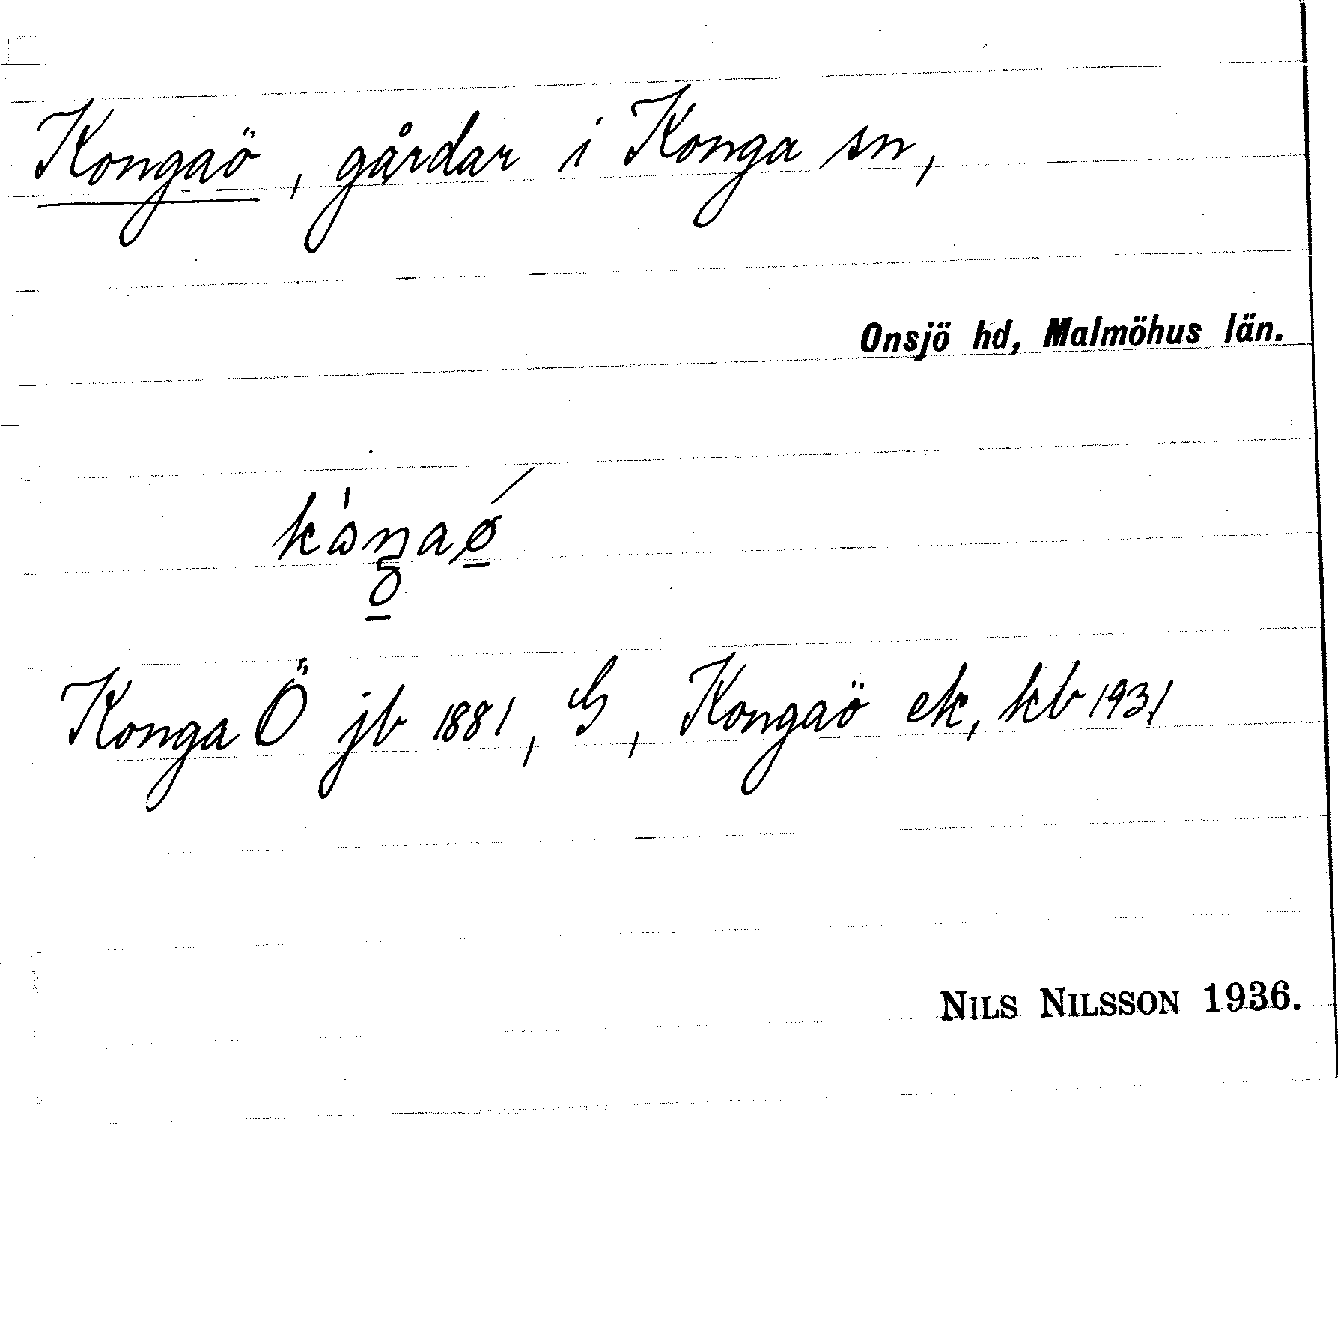 Kongaö, gårdar i Konga sn,
Onsjö hd, Malmöhus län.
Konga Ö jb 1881, G, Kongaö ek, kb 1931
NILS NILSSON 1936.